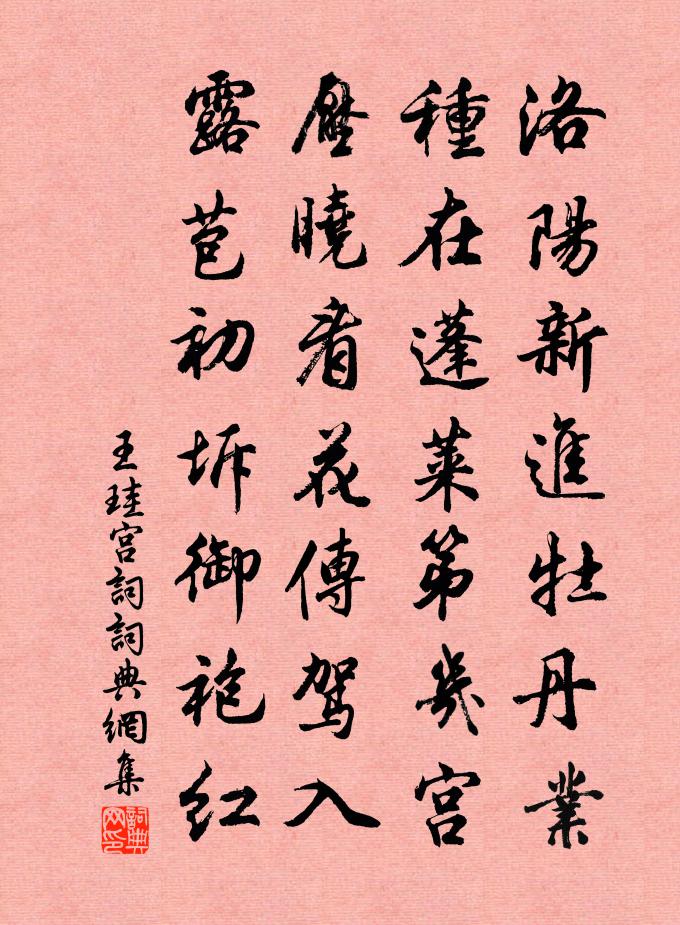 洛陽新進牡丹叢
種在蓬萊第幾宮
壓曉看花傳駕入
露苞初坼御袍紅
王珪宮詞詞典網集
詞典网印